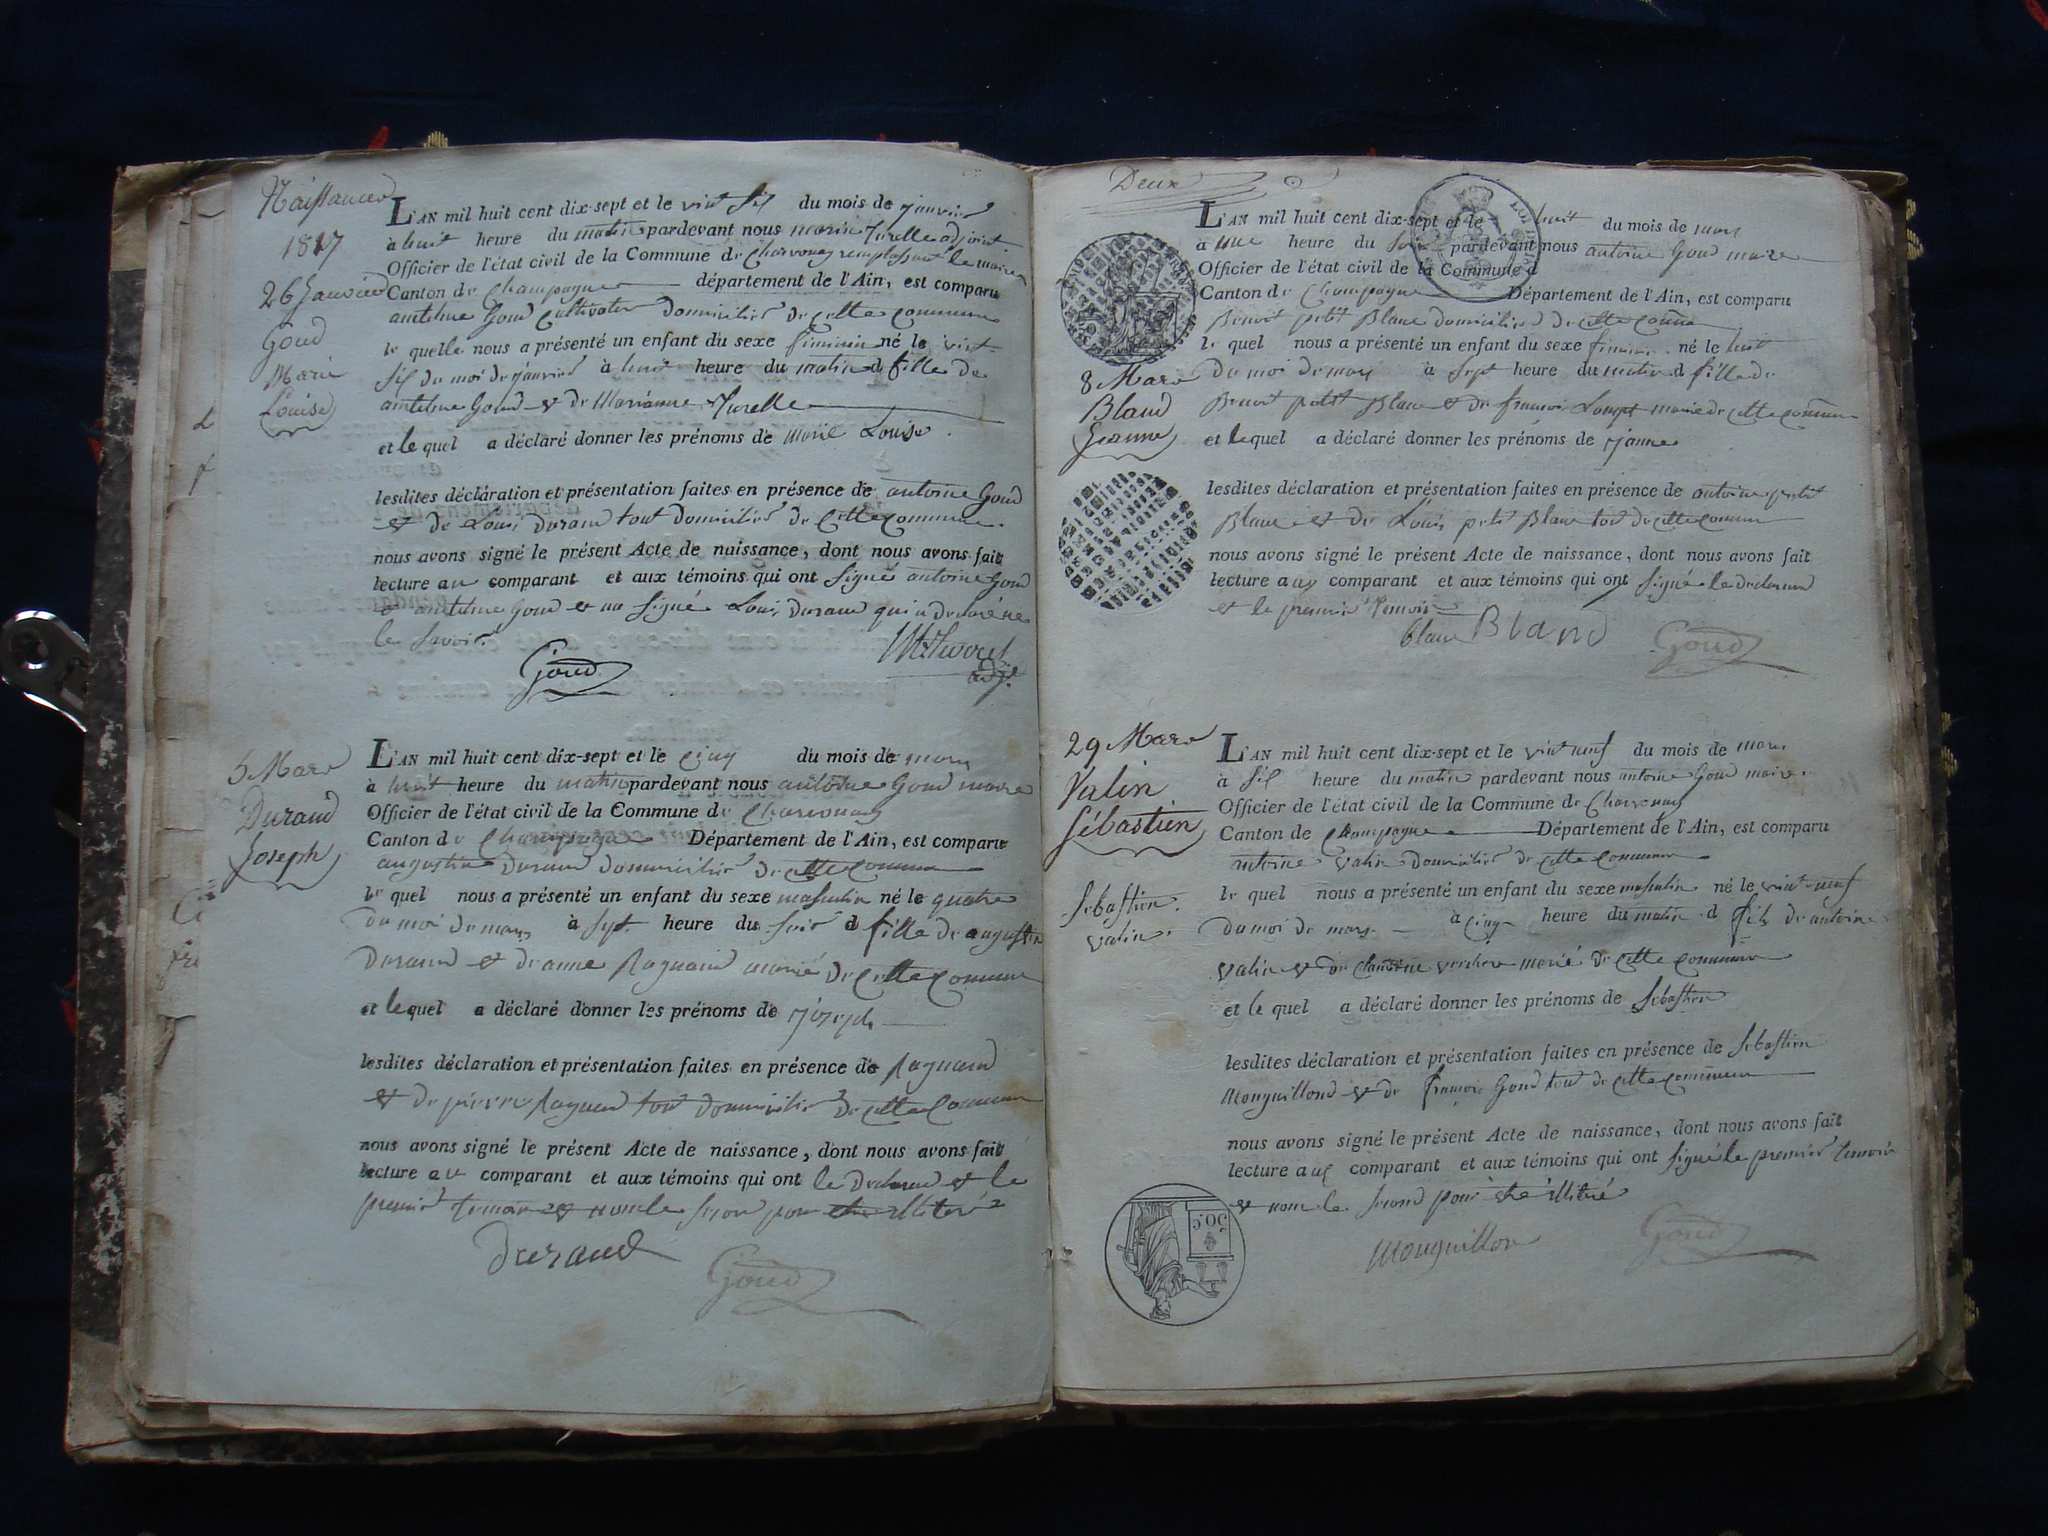 Naissances
1817
26 Janvier
Goud
Marie
Louise
L'AN mil huit cent dix-sept et le vint six du mois de janvier
à huit heure du matin pardevant nous adjoint
Officier de l'état civil de la Commune de Charvonay remplassant le maire
Canton de Champagne département de l'Ain, est comparu
antelme Goud Cultivater domicilié de cette commune
le quelle nous a présenté un enfant du sexe féminin né le vint
six du moi de janvier à huit heure du matin d fille de
antelme Goud et de Marianne
et le quel a déclaré donner les prénoms de Marie Louise
lesdites déclaration et présentation faites en présence de antoine Goud
et de Louis durand tout domicilié de cette commune
nous avons signé le présent Acte de naissance, dont nous avons fait
lecture au comparant et aux témoins qui ont signé antoine Goud
et antelme Goud et no signé Louis Durand qui a déclaré ne
le savoir
Goud
adj.
5 Mars
Durand
Joseph
L'AN mil huit cent dix-sept et le cinq du mois de mars
à huit heure du matin pardevant nous antoine Goud maire
Officier de l'état civil de la Commune de Charvonay
Canton de Champagne Département de l'Ain, est comparu
augustin Durand domicilié de cette commune
le quel nous a présenté un enfant du sexe masculin né le quatre
du moi de mars à sept heure du soir d fille de augustin
Durand et de anne Raguain marié de cette commune
et le quel a déclaré donner les prénoms de joseph
lesdites déclaration et présentation faites en présence de
et de pierre tout domicilié de cette commune
nous avons signé le présent Acte de naissance, dont nous avons fait
lecture au comparant et aux témoins qui ont le declarand et le
premier temoin et non le pour illiteré
Durand
Goud
Deux
8 Mars
Bland
Jeanne
L'AN mil huit cent dix-sept et le huit du mois de mars
à une heure du soir pardevant nous antoine Goud maire
Officier de l'état civil de la Commune d
Canton de Champagne Département de l'Ain, est comparu
Benoit petit Blanc domicilié de cette comne
le quel nous a présenté un enfant du sexe féminin né le huit
du moi de mars à sept heure du matin d fille de
Benoit petit Blanc et de marié de cette commune
et le quel a déclaré donner les prénoms de janne
lesdites déclaration et présentation faites en présence de antoine petit
Blanc et de Louis petit Blanc tout de cette comune
nous avons signé le présent Acte de naissance, dont nous avons fait
lecture aux comparant et aux témoins qui ont signé le declarand
et le premier temoin
blanc Bland
Goud
29 Mars
Valin
Sébastien
Sebastien
Valin
L'AN mil huit cent dix-sept et le vint neuf du mois de mars
à six heure du matin pardevant nous antoine Goud maire
Officier de l'état civil de la Commune de Charvonay
Canton de Champagne Département de l'Ain, est comparu
antoine Valin domicilié de cette commune
le quel nous a présenté un enfant du sexe masculin né le vint neuf
du moi de mars à cinq heure du matin d fils de antoine
Valin et de claudine marié de cette commune
et le quel a déclaré donner les prénoms de Sebastien
lesdites déclaration et présentation faites en présence de Sebastien
Monguillond et de françois Goud tout de cette commune
nous avons signé le présent Acte de naissance, dont nous avons fait
lecture aux comparant et aux témoins qui ont signé le premier temoin
et non le second pour illitéré
Monguillon
Goud
50 C